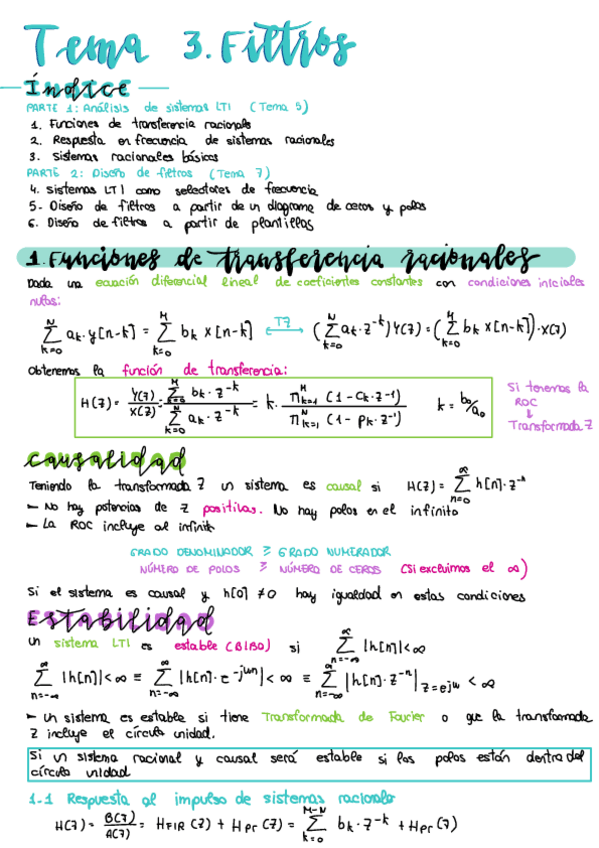 Tema 3. Filtros
Índice
PARTE 1: Análisis de sistemas LTI (Tema 5)
1. Funciones de transferencia racionales
2. Respuesta en frecuencia de sistemas racionales
3. Sistemas racionales básicos
PARTE 2: Diseño de filtros (Tema 7)
4. Sistemas LTI como selectores de frecuencia
5- Diseño de filtros a partir de un diagrama de ceros y polos
6. Diseño de filtros a partir de plantillas
1. Funciones de transferencia racionales
Dada una ecuación diferencial lineal de coeficientes constantes con condiciones iniciales
nulas:
∑_{k=0}^{N} a_k·y[n-k] = ∑_{k=0}^{M} b_k x[n-k] ⟷^{TZ} (∑_{k=0}^{N} a_k·z^{-k}) Y(z) = (∑_{k=0}^{M} b_k x[n-k])·X(z)
Obtenemos la función de transferencia:
H(z) = Y(z)/X(z) = ∑_{k=0}^{M} b_k·z^{-k} / ∑_{k=0}^{N} a_k·z^{-k} = k· ∏_{k=1}^{M} (1-c_k·z^{-1}) / ∏_{k=1}^{N} (1-p_k·z^{-1}) k = b_0/a_0
Si tenemos la
ROC
↓
Transformada Z
Causalidad
Teniendo la transformada Z un sistema es causal si H(z) = ∑_{n=0}^{∞} h[n]·z^{-n}
– No hay potencias de z positivas. No hay polos en el infinito
– La ROC incluye al infinito
GRADO DENOMINADOR ≥ GRADO NUMERADOR
NÚMERO DE POLOS ≥ NÚMERO DE CEROS (Si excluimos el ∞)
Si el sistema es causal y h[0] ≠ 0 hay igualdad en estas condiciones
ESTABILIDAD
Un sistema LTI es estable (BIBO) si ∑_{n=-∞}^{∞} |h[n]| < ∞
∑_{n=-∞}^{∞} |h[n]| < ∞ ≡ ∑_{n=-∞}^{∞} |h[n]·e^{-jωn}| < ∞ ≡ ∑_{n=-∞}^{∞} |h[n]·z^{-n}|_{z=e^{jω}} < ∞
– Un sistema es estable si tiene Transformada de Fourier o que la transformada
Z incluye el círculo unidad.
Si un sistema racional y causal será estable si los polos están dentro del
círculo unidad
1-1 Respuesta al impulso de sistemas racionales
H(z) = B(z)/A(z) = H_{FIR}(z) + H_{pr}(z) = ∑_{k=0}^{M-N} b_k·z^{-k} + H_{pr}(z)